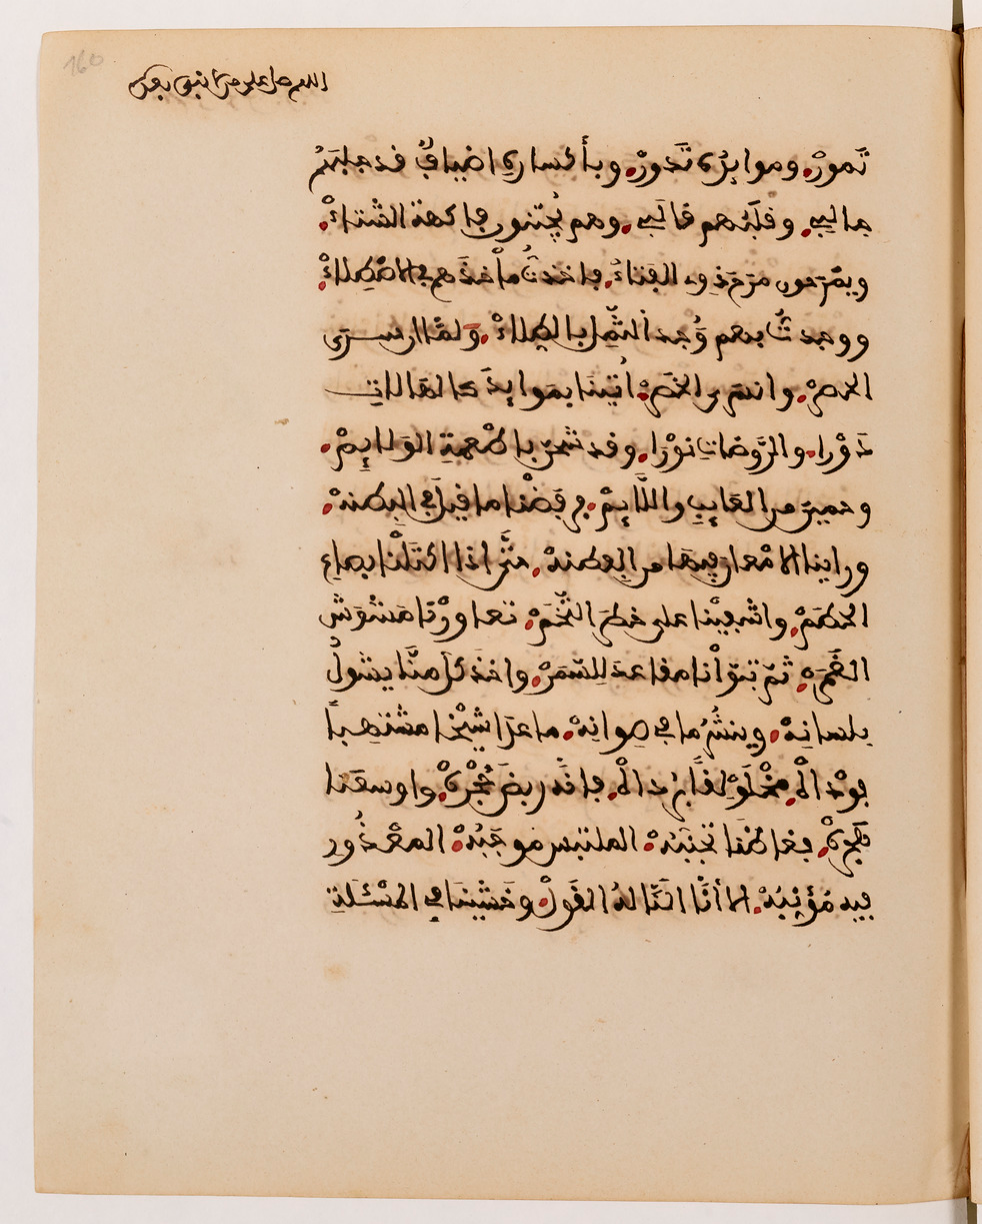 اللهم صل على من لا نبي بعده
تَمورْ. وموايدُ تَدورْ. وبأكساري اضيافٌ قد جلبهمُ
جالبي. وقلبهم قالبي. وهم يجتنون فاكهة الشتاءْ.
ويمرَحون مرَحَ ذوي الفتاءْ. فاخذتُ مأخذهم في الاصطلاءْ
ووجدتُ بهم وُجد الثمِل بالطلاءْ. ولمّا ان سرَى
الحصرْ. وانسرى الخصَرْ. اُتينا بموايدَ كالهالاتِ
دَوْرا. والرَّوضاتِ نوْرا. وقد شحنّ باطْعمةِ الولايِمْ.
وحمينَ من العايبِ واللَّايِمْ. فرفضْنا ما قيل في البطنهْ.
وراينا الامْعان فيها من الفِطنهْ. حتَّى اذا اكتَلْنا بصاعِ
الحطَمْ. واشفيْنا على خطَرِ التُّخَمْ. تعاورْنا مَشُوشَ
الغَمَرْ. ثمّ تبوّأنا مقاعدَ للسّمَرْ. واخذ كلّ منَّا يشولُ
بلسانِهْ. وينشُرُ ما في صِوانِهْ. ما عدَا شيْخًا مشتهبًا
فوْداهْ. مخْلَوْلِقًا برُداهْ. فانَّه ربضَ حُجْرَةْ. واوسعَنا
هَجرَةْ. فغاظنَا تجنّبُهْ. الملتبس موجَبُهْ. المعْذُور
فيه مُؤنِّبُهْ. الا أنَّا النَّا لهُ القولْ. وخشينَا في المسْئَلةِ